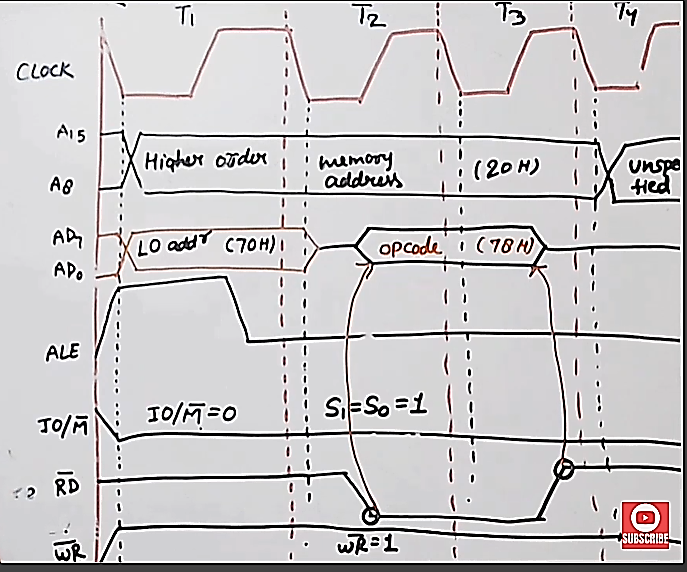 T1 T2 T3 T4
CLOCK
A15
Higher order memory address (20H) unspe
A8 fied
AD7
LO addr (70H) opcode (78H)
AD0
ALE
IO/M̅ IO/M̅=0 S1=S0=1
R̅D̅
W̅R̅ W̅R̅=1
SUBSCRIBE